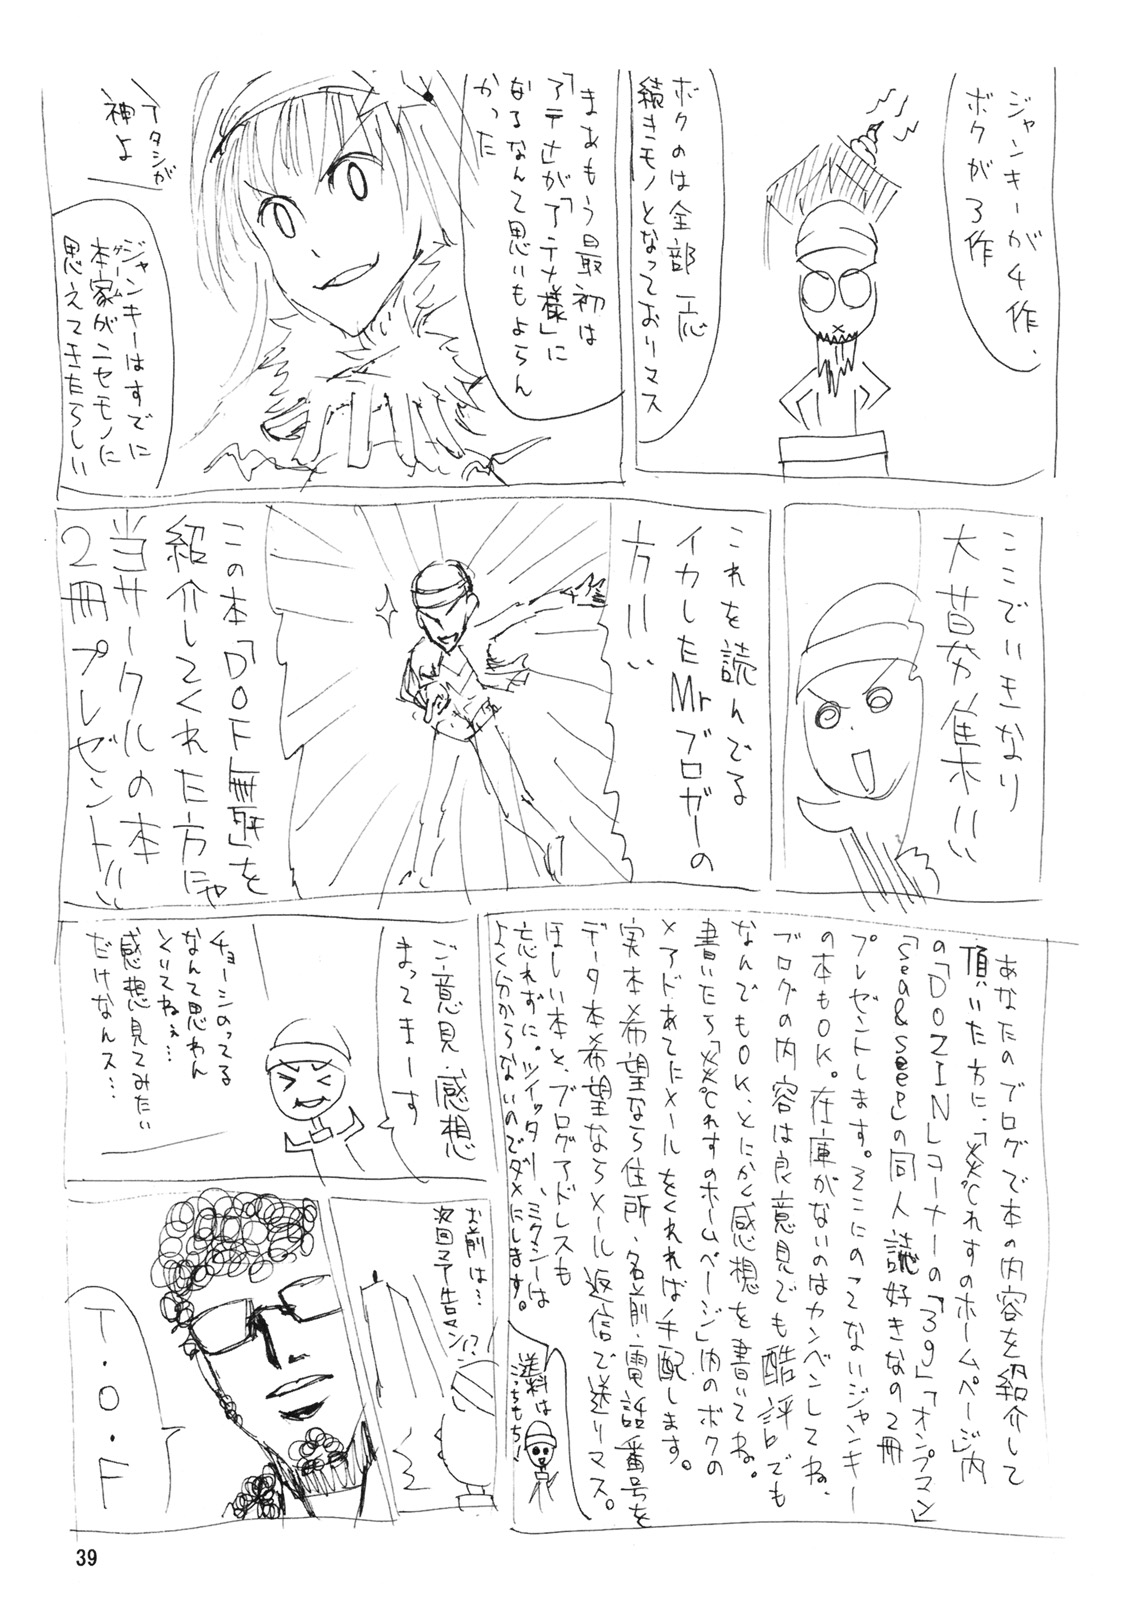 ジャンキーが4作、
ボクが3作
ボクのは全部一応
続きモノとなっておりマス
まあもう最初は
「アテナ」が「アテナ様」に
なるなんて思いもよらん
かった
アタシが
神よ
ジャンキーはすでに
本家がニセモノに
ゲーム
思えてきたらしい
ここでいきなり
大募集!!!
これを読んでる
イカしたMrブロガーの
方!!!
この本「DOF無双」を
紹介してくれた方にゃ
当サークルの本
2冊プレゼント!!
あなたのブログで本の内容を紹介して
頂いた方に、「災されすのホームページ」内
の「DOZIN」コーナーの「39」「オンプマン」
「sea&seep」の同人誌好きなの2冊
プレゼントします。そこにのってないジャンキー
の本もOK。在庫がないのはカンベンしてね、
ブログの内容は良意見でも酷評でも
なんでもOK、とにかく感想を書いてね。
書いたら「災されすのホームページ」内のボクの
メアドあてにメールをくれれば手配します。
実本希望なら住所・名前・電話番号を
データ本希望ならメール返信で送りマス。
ほしい本と、ブログアドレスも
忘れずに。ツイッター、ミクシーは
よく分からないのでダメにします。
送料は
こっちもち!
ご意見・感想
まってまーす
チョーシのってる
なんて思わん
といてねぇ…
感想見てみたい
だけなんス…
お前は…
次回予告マン!?
T・O・F
39